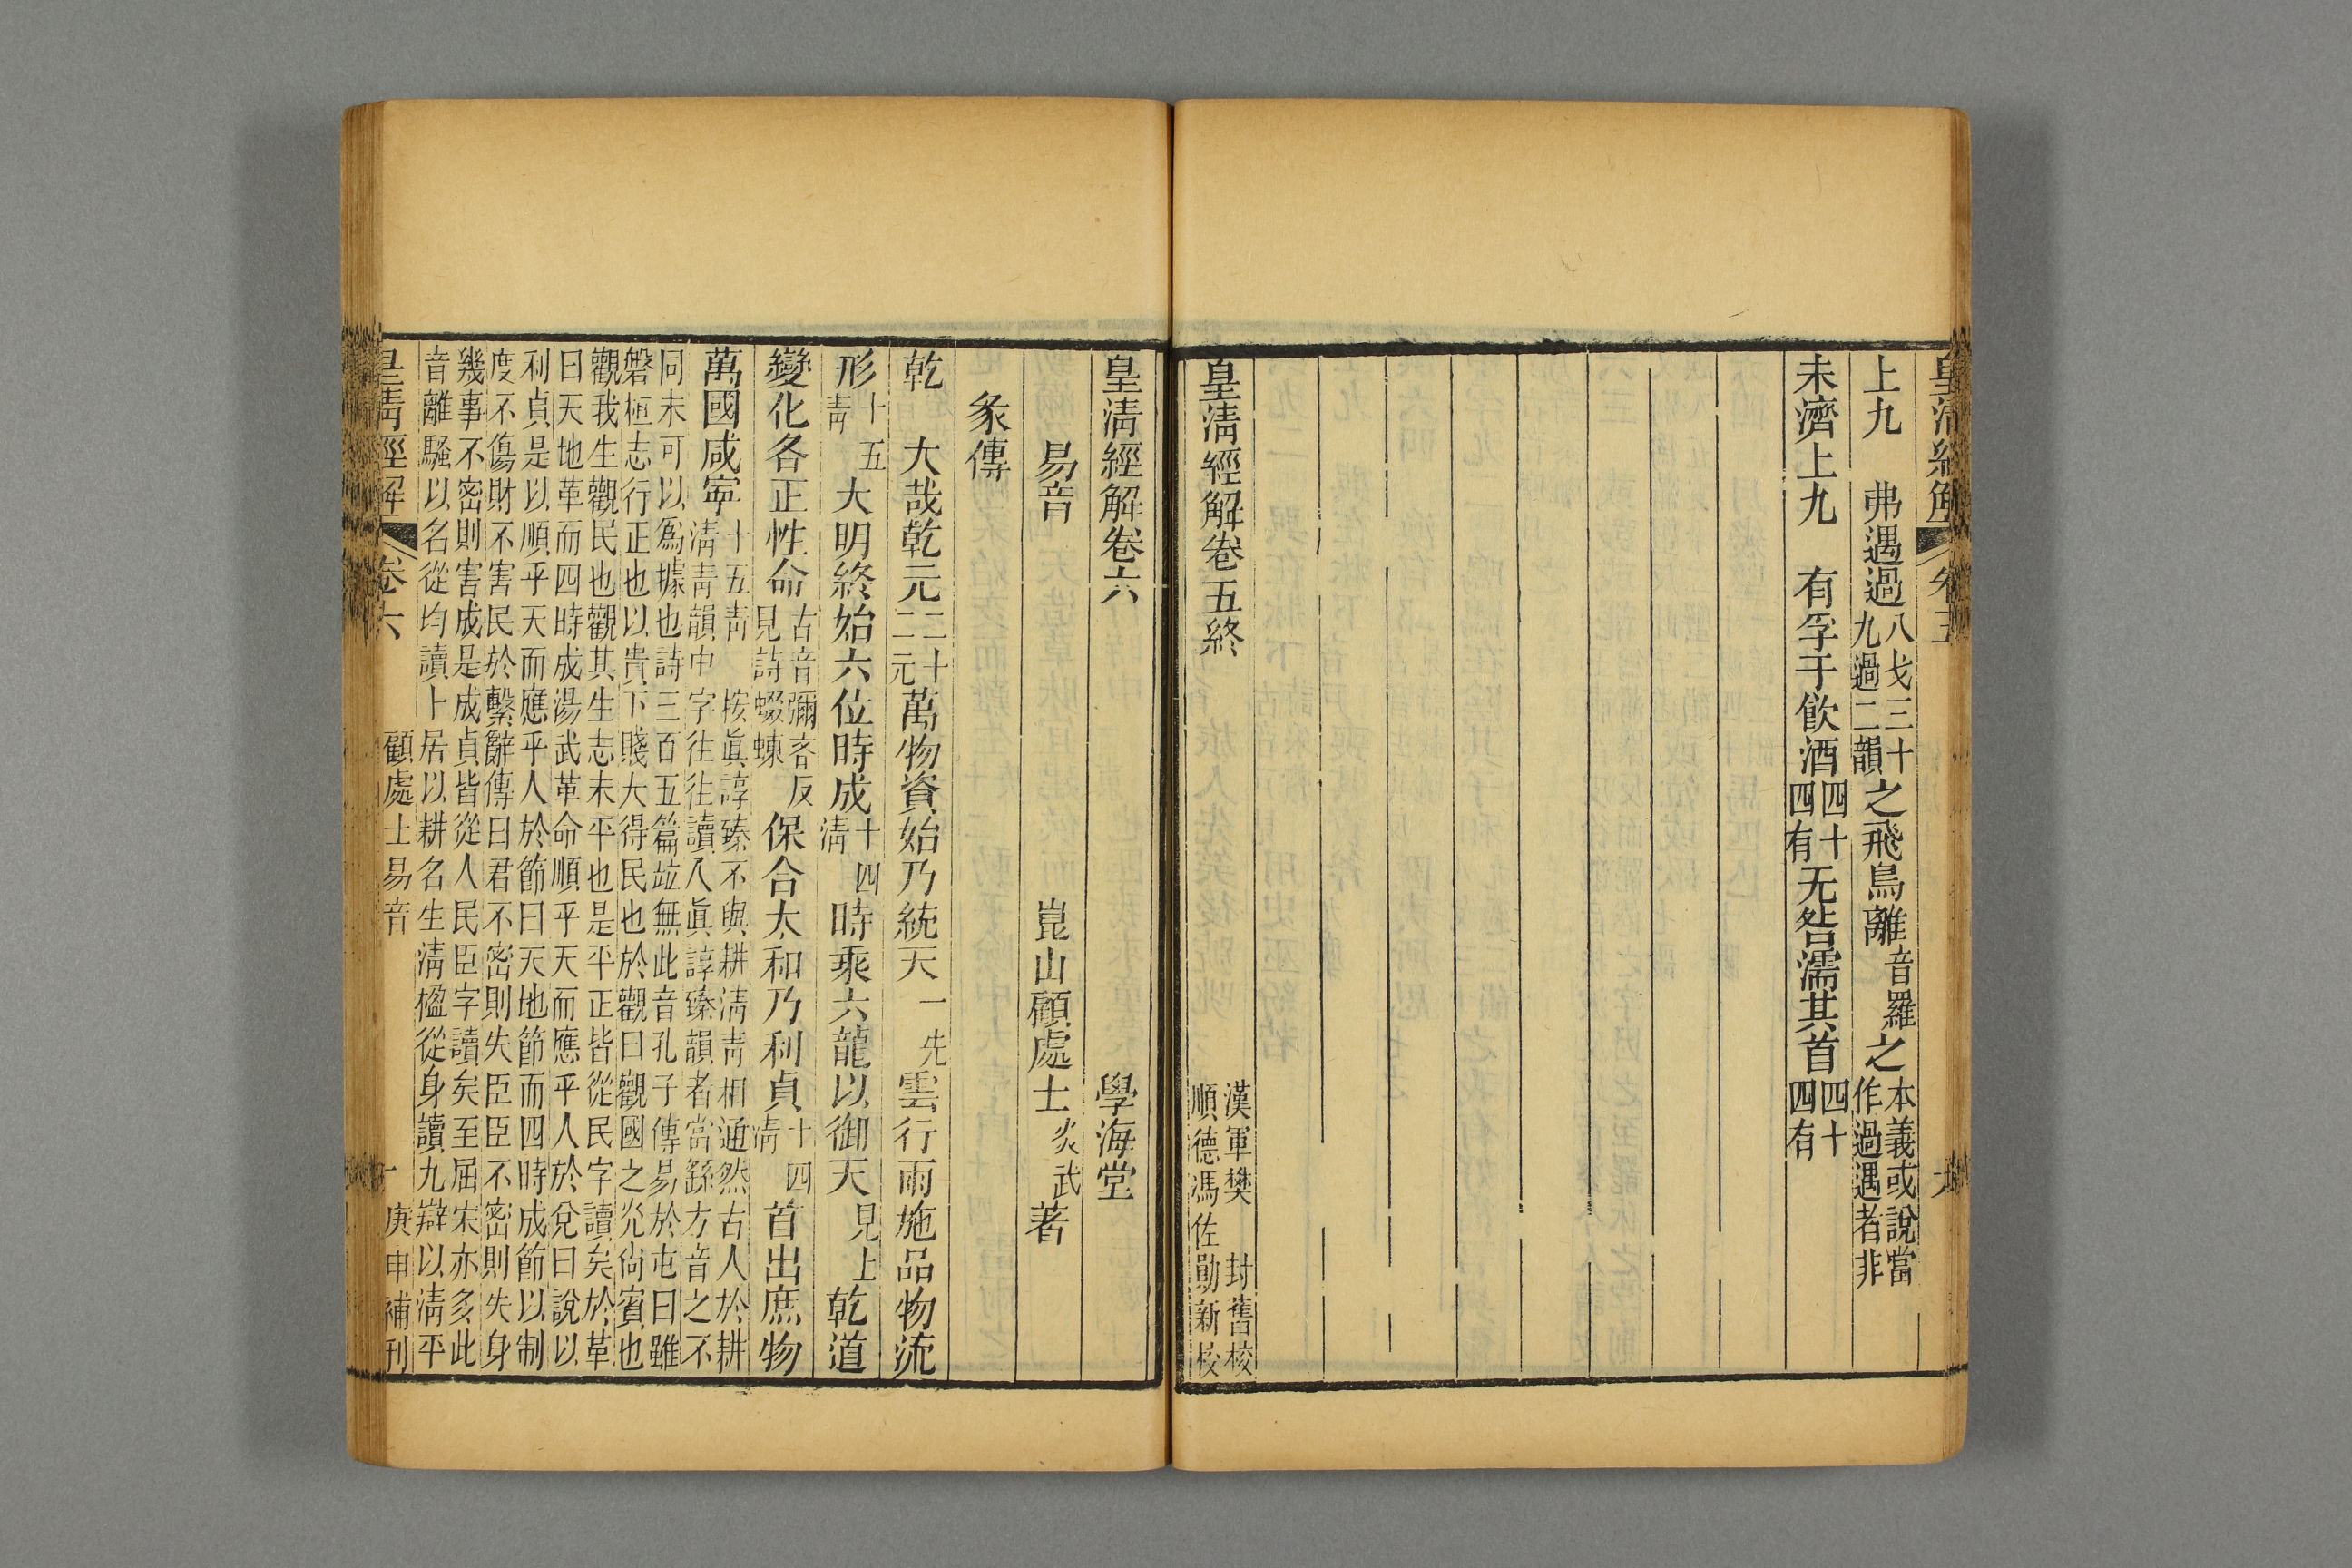 皇清經解 卷五
上九　弗遇過八戈三十九過二韻之飛鳥離音羅之本義或說當作過遇者非
未濟上九　有孚于飲酒四十四有无咎濡其首四十四有
皇清經解卷五終　漢軍樊　封舊校
順德馮佐勛新校
皇清經解卷六　學海堂
易音　崑山顧處士炎武著
彖傳
乾　大哉乾元二十二元萬物資始乃統天一先雲行雨施品物流
形十五青大明終始六位時成十四清時乘六龍以御天見上乾道
變化各正性命古音彌吝反見詩蝃蝀保合太和乃利貞十四清首出庶物
萬國咸寧十五青　按眞諄臻不與耕清青相通然古人於耕
清青韻中字往往讀入眞諄臻韻者當繇方音之不
同未可以爲據也詩三百五篇竝無此音孔子傳易於屯曰雖
磐桓志行正也以貴下賤大得民也於觀曰觀國之光尚賓也
觀我生觀民也觀其生志未平也是平正皆從民字讀矣於革
曰天地革而四時成湯武革命順乎天而應乎人於兌曰說以
利貞是以順乎天而應乎人於節曰天地節而四時成節以制
度不傷財不害民於繫辭傳曰君不密則失臣臣不密則失身
幾事不密則害成是成貞皆從人民臣字讀矣至屈宋亦多此
音離騷以名從均讀卜居以耕名生清楹從身讀九辯以清平
皇清經解 卷六　顧處士易音　一　庚申補刊